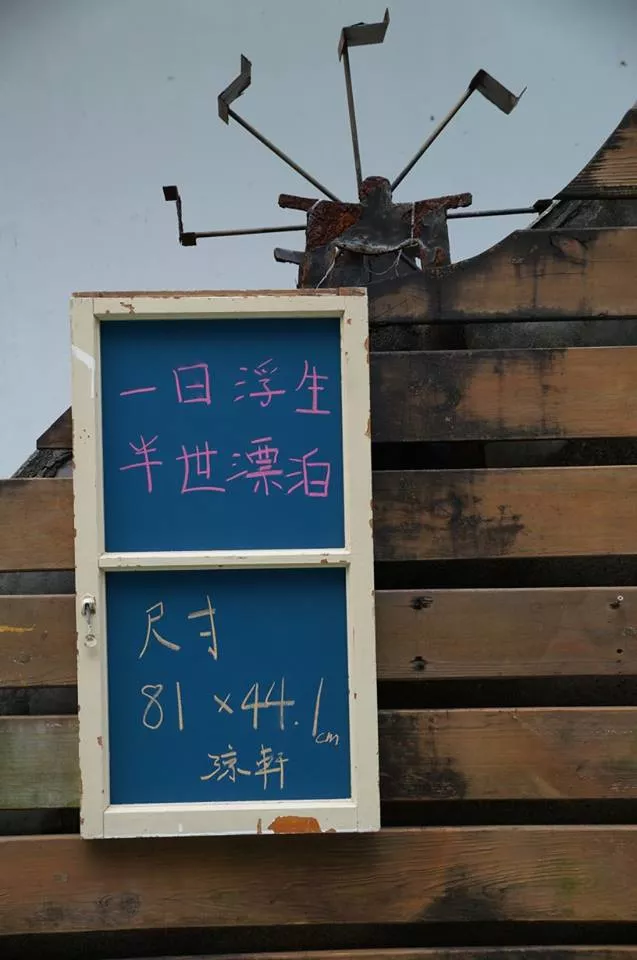 一日浮生
半世漂泊
尺寸
81×44.1cm
涼軒